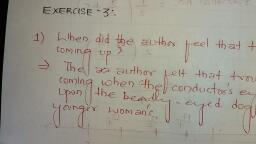 EXERCISE-3:
1) When did the author feel that
coming up?
⇒ The author felt that
coming when the conductor's
upon the beady-eyed
younger woman's.